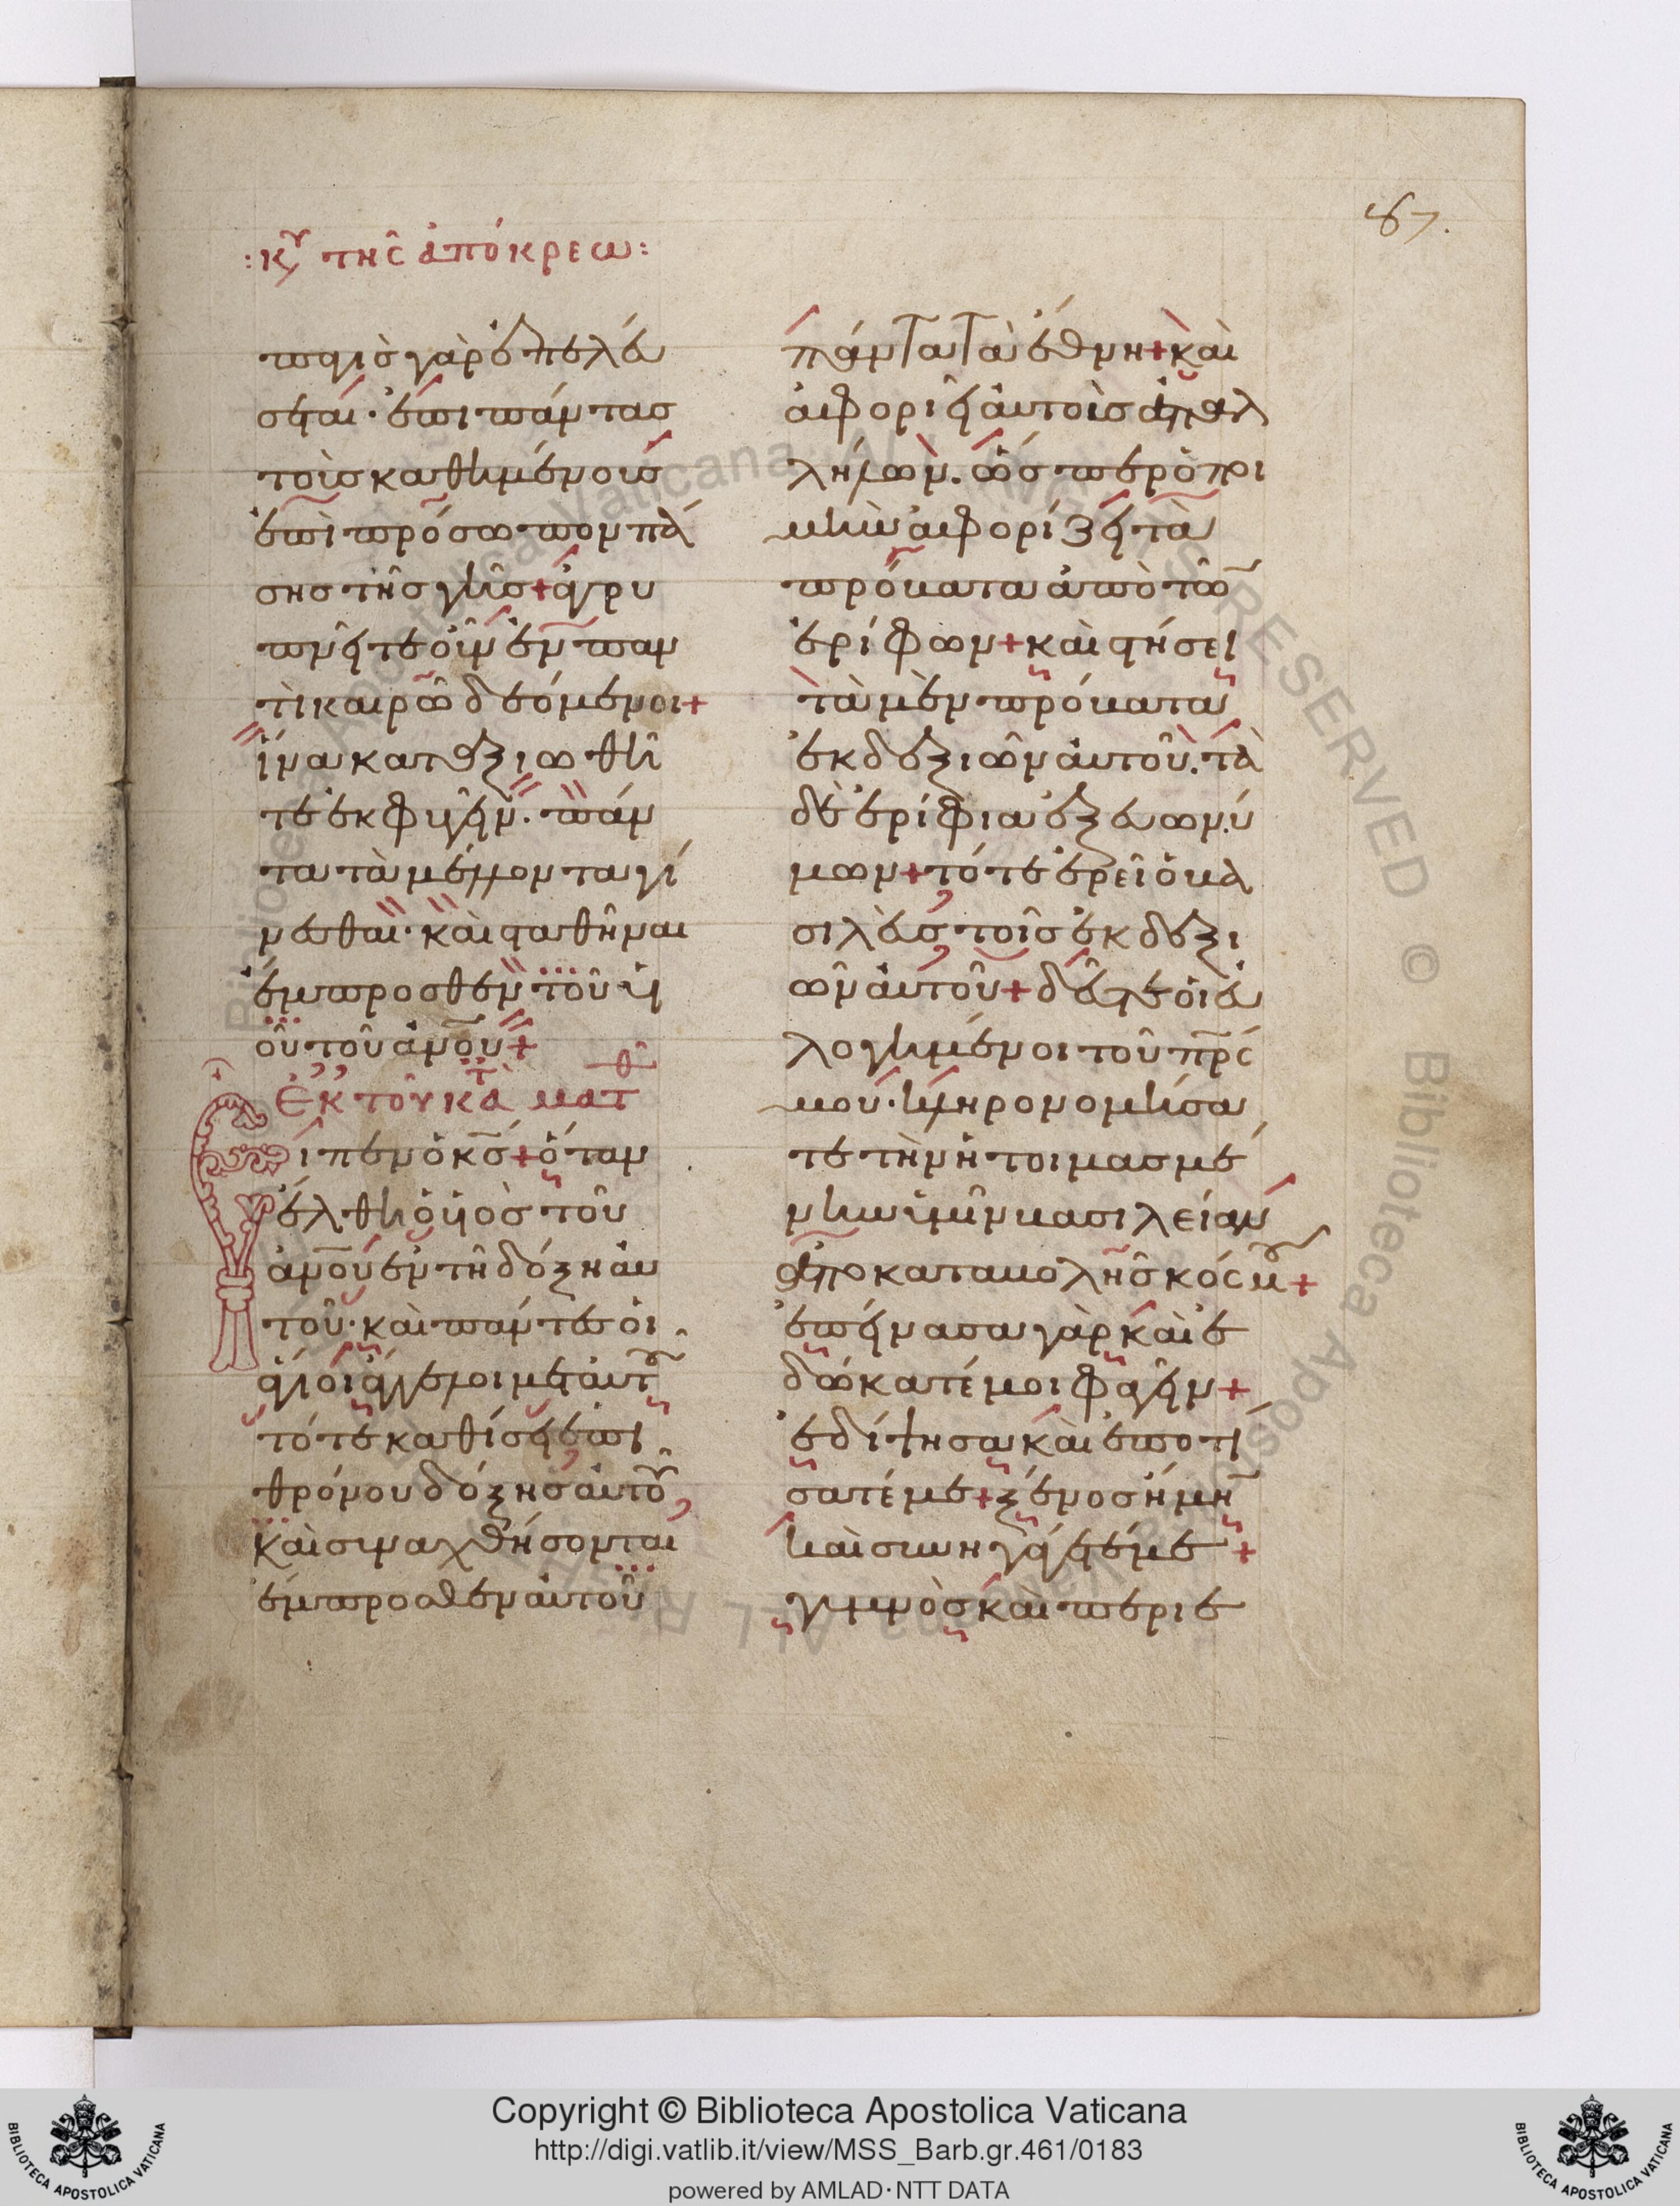 87.
:κυ τῆς ἀπόκρεω:
παγὶς γὰρ ἐπελεύ
σεται· ἐπὶ πάντας
τοὺς καθημένους
ἐπὶ πρόσωπον πά
σης τῆς γῆς + ἀγρυ
πνεῖτε οὖν ἐν παν
τὶ καιρῶ δεόμενοι +
ἵνα καταξιωθῆ
τε ἐκφυγεῖν· πάν
τα τὰ μέλλοντα γί
νεσθαι· καὶ σταθῆναι
ἔμπροσθεν τοῦ υἱ
οῦ τοῦ ἀνου +
Ἐκ τοῦ κατὰ ματθ
Εἶπεν ὁ κς + ὅταν
ἔλθη ὁ υἱὸς τοῦ
ἀνου ἐν τῆ δόξη αὐ
τοῦ· καὶ πάντες οἱ
ἅγιοι ἄγγελοι μετ αὐτοῦ
τότε καθίσει ἐπὶ
θρόνου δόξης αὐτοῦ
καὶ συναχθήσονται
ἔμπροσθεν αὐτοῦ
πάντα τὰ ἔθνη + καὶ
ἀφοριεῖ αὐτοὺς ἀπ ἀλ
λήλων· ὥσπερ ὁ ποι
μὴν ἀφορίζει τὰ
πρόβατα ἀπὸ τῶν
ἐρίφων + καὶ στήσει
τὰ μὲν πρόβατα
ἐκ δεξιῶν αὐτοῦ· τὰ
δὲ ἐρίφια ἐξ εὐωνύ
μων + τότε ἐρεῖ ὁ βα
σιλεὺς τοῖς ἐκ δεξι
ῶν αὐτοῦ + δεῦτε οἱ εὐ
λογημένοι τοῦ πρς
μου· κληρονομήσα
τε τὴν ἡτοιμασμέ
νην ὑμῖν βασιλείαν
ἀπὸ καταβολῆς κόσμου +
ἐπείνασα γὰρ καὶ ἐ
δώκατέ μοι φαγεῖν +
ἐδίψησα καὶ ἐποτί
σατέ με + ξένος ἤμην
καὶ συνηγάγετέ με +
γυμνὸς καὶ περιε
Copyright © Biblioteca Apostolica Vaticana
http://digi.vatlib.it/view/MSS_Barb.gr.461/0183
powered by AMLAD·NTT DATA